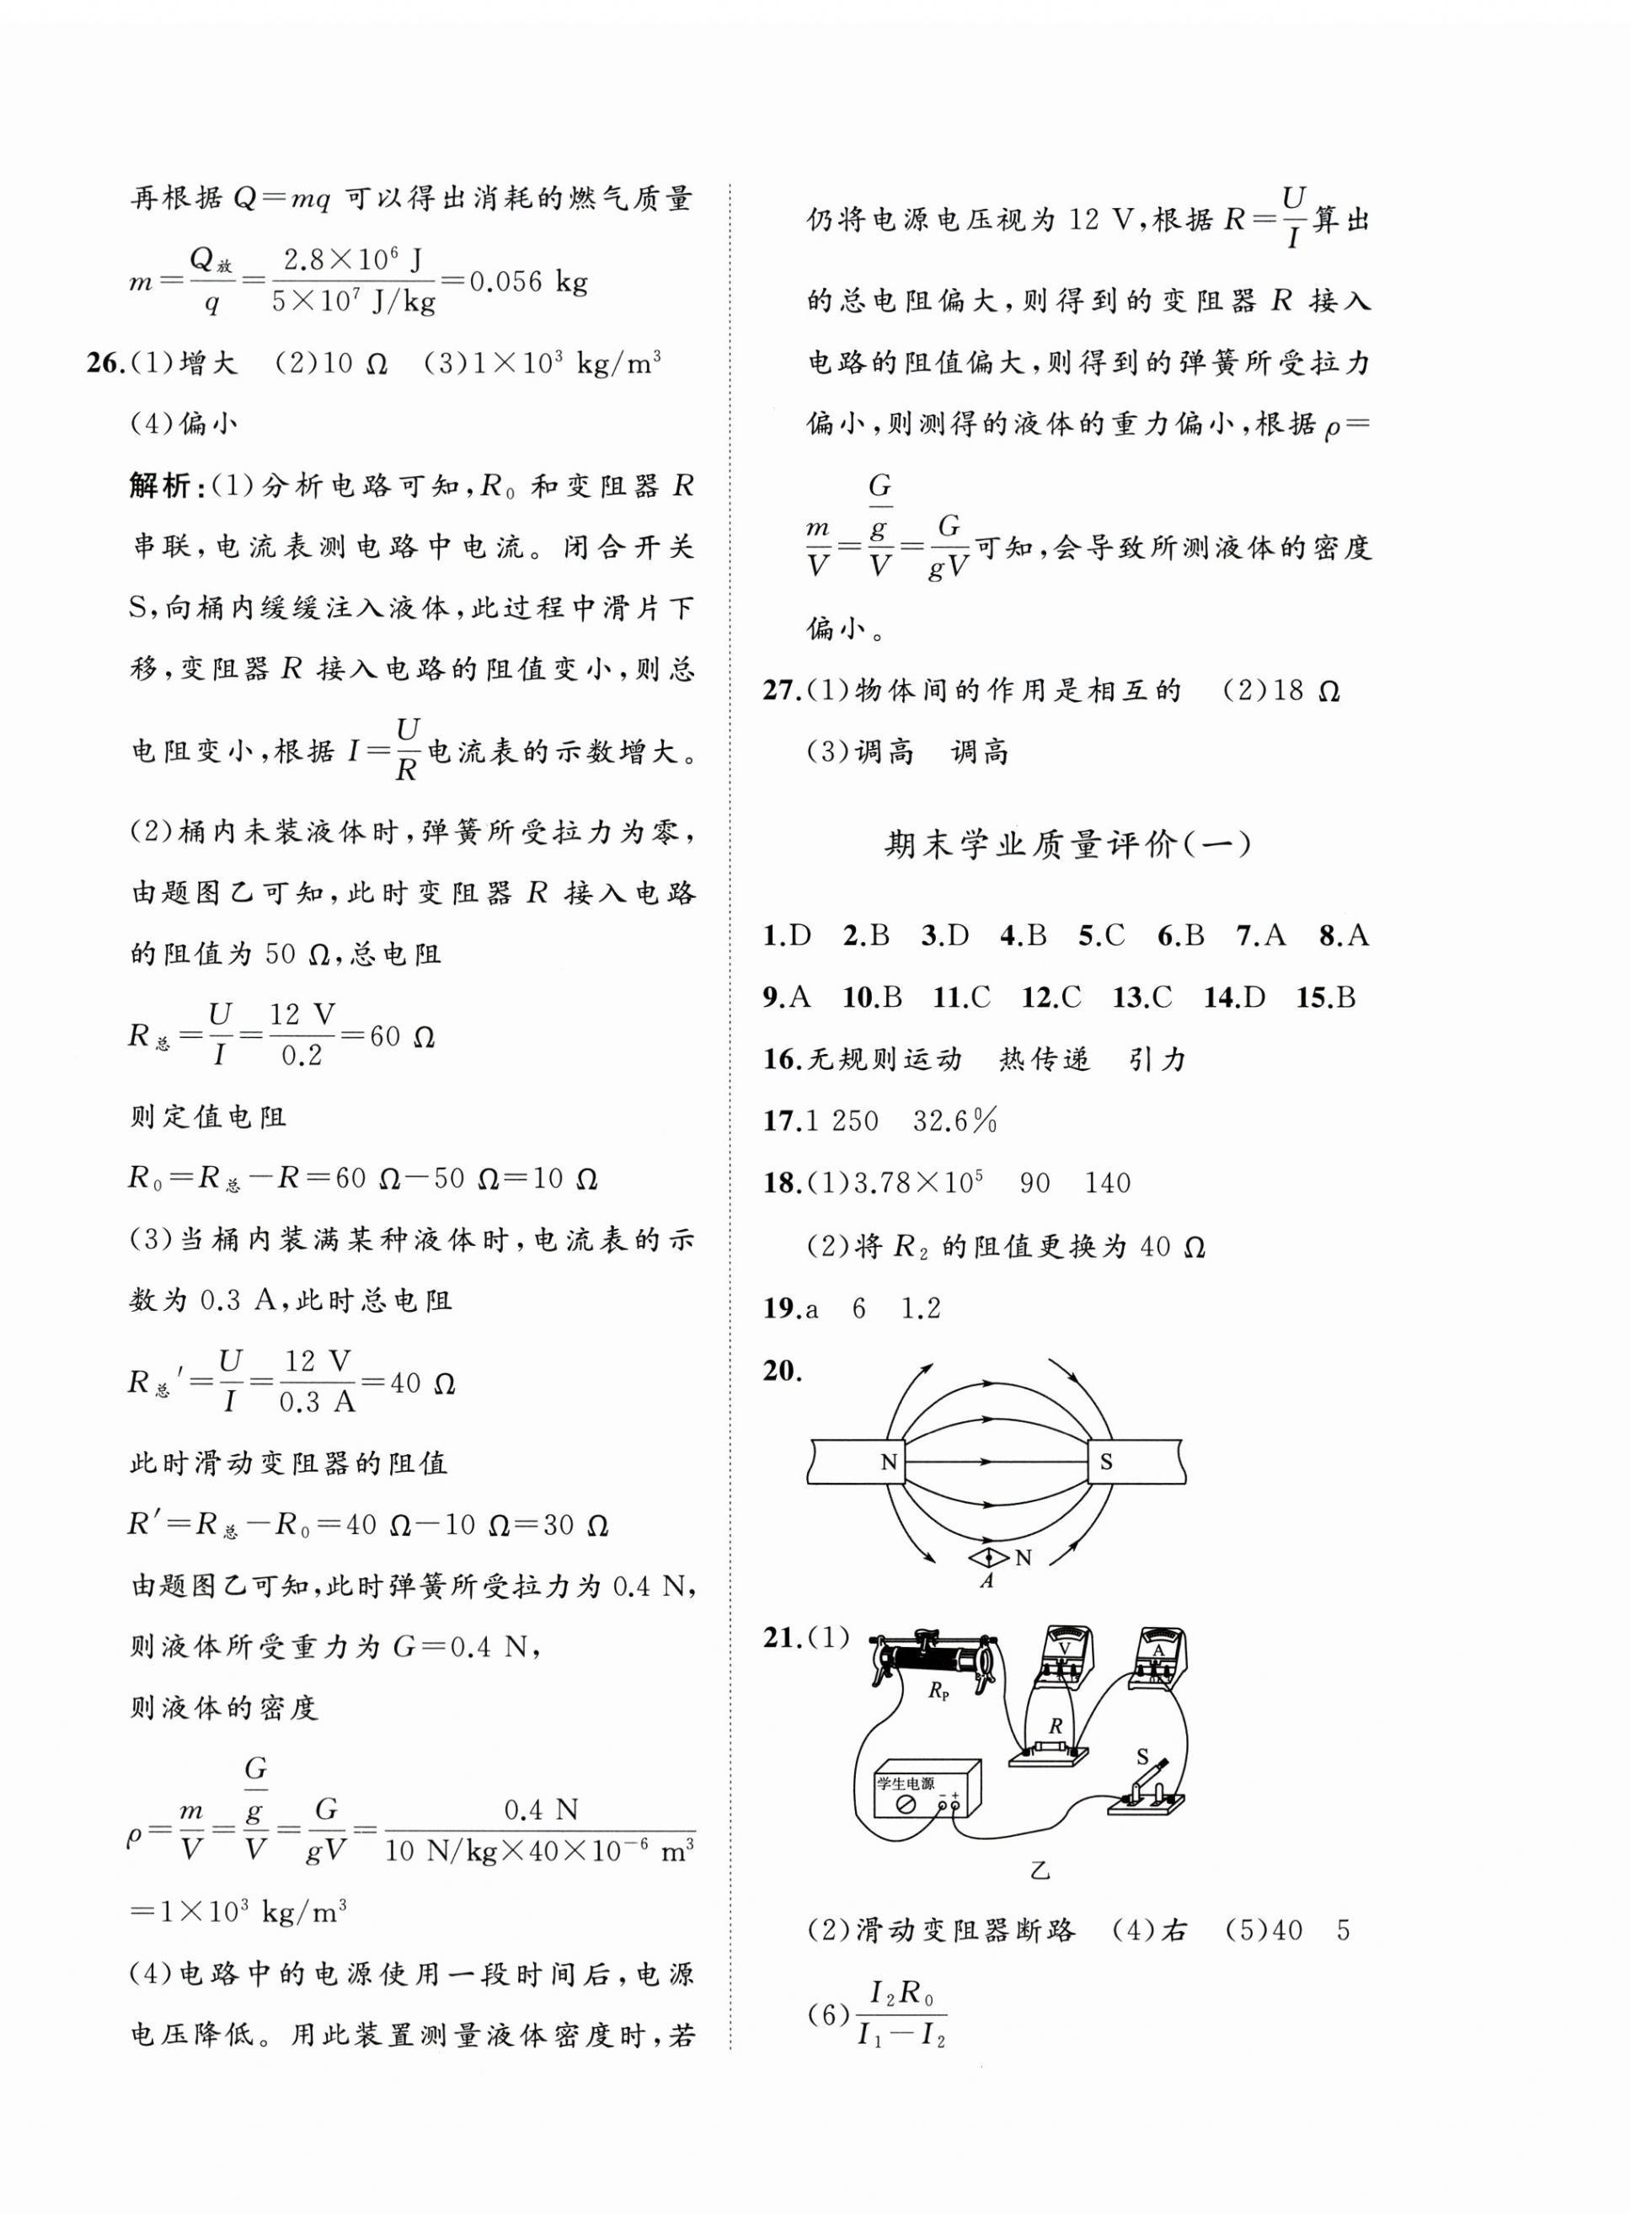 再根据 Q=mq 可以得出消耗的燃气质量
m=Q放/q=2.8×10⁶ J/5×10⁷ J/kg=0.056 kg
26.(1)增大 (2)10 Ω (3)1×10³ kg/m³
(4)偏小
解析:(1)分析电路可知,R₀ 和变阻器 R
串联,电流表测电路中电流。闭合开关
S,向桶内缓缓注入液体,此过程中滑片下
移,变阻器 R 接入电路的阻值变小,则总
电阻变小,根据 I=U/R电流表的示数增大。
(2)桶内未装液体时,弹簧所受拉力为零,
由题图乙可知,此时变阻器 R 接入电路
的阻值为 50 Ω,总电阻
R总=U/I=12 V/0.2=60 Ω
则定值电阻
R₀=R总-R=60 Ω-50 Ω=10 Ω
(3)当桶内装满某种液体时,电流表的示
数为 0.3 A,此时总电阻
R总′=U/I=12 V/0.3 A=40 Ω
此时滑动变阻器的阻值
R′=R总-R₀=40 Ω-10 Ω=30 Ω
由题图乙可知,此时弹簧所受拉力为 0.4 N,
则液体所受重力为 G=0.4 N,
则液体的密度
ρ=m/V=(G/g)/V=G/gV=0.4 N/10 N/kg×40×10⁻⁶ m³
=1×10³ kg/m³
(4)电路中的电源使用一段时间后,电源
电压降低。用此装置测量液体密度时,若
仍将电源电压视为 12 V,根据 R=U/I算出
的总电阻偏大,则得到的变阻器 R 接入
电路的阻值偏大,则得到的弹簧所受拉力
偏小,则测得的液体的重力偏小,根据ρ=
m/V=(G/g)/V=G/gV可知,会导致所测液体的密度
偏小。
27.(1)物体间的作用是相互的 (2)18 Ω
(3)调高 调高
期末学业质量评价(一)
1.D 2.B 3.D 4.B 5.C 6.B 7.A 8.A
9.A 10.B 11.C 12.C 13.C 14.D 15.B
16.无规则运动 热传递 引力
17.1 250 32.6%
18.(1)3.78×10⁵ 90 140
(2)将 R₂ 的阻值更换为 40 Ω
19.a 6 1.2
20.
N S
N
A
21.(1)
V A
RP
R
S
学生电源
- +
乙
(2)滑动变阻器断路 (4)右 (5)40 5
(6)I₂R₀/I₁-I₂